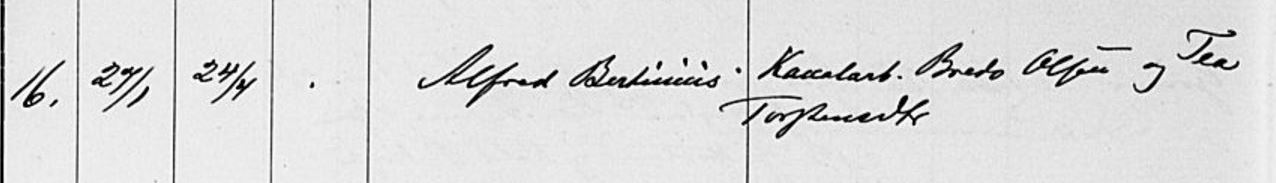 16. 27/1 24/4 . Alfred Bertinius. Kanalarb. Bredo Olsen og Tea
Torstensdtr